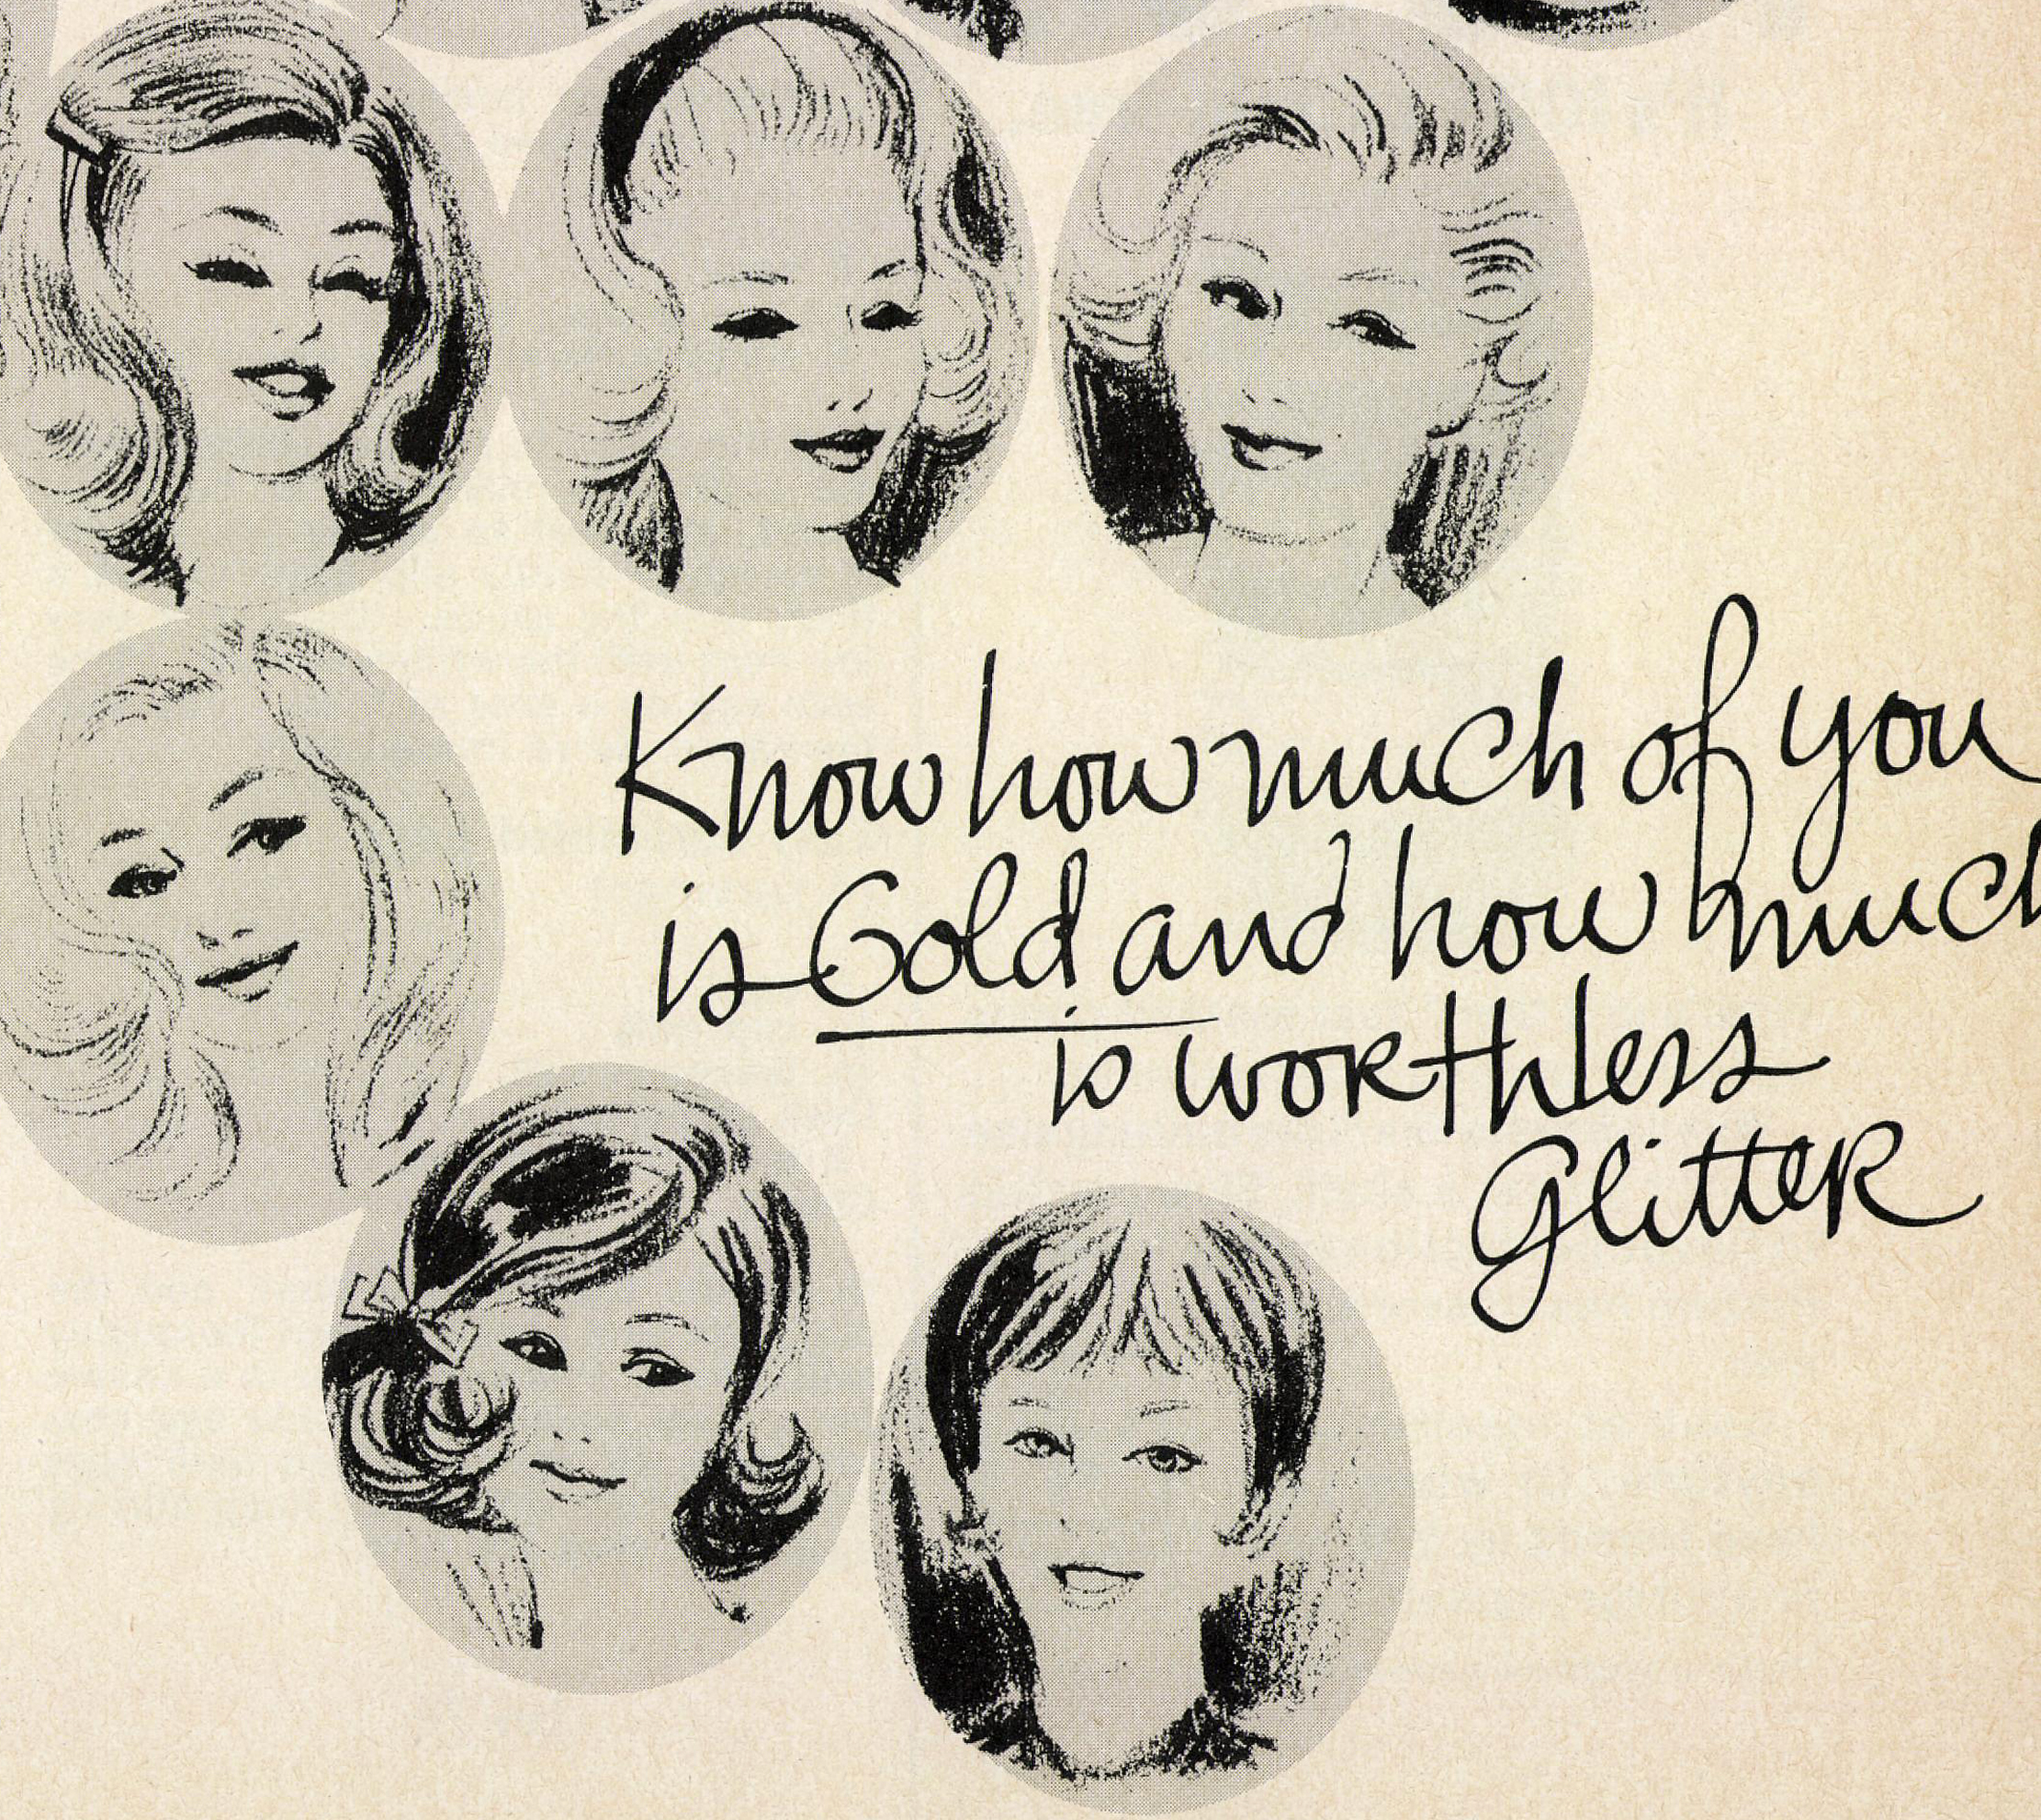 Know how much of you
is Gold and how much
is worthless
Glitter